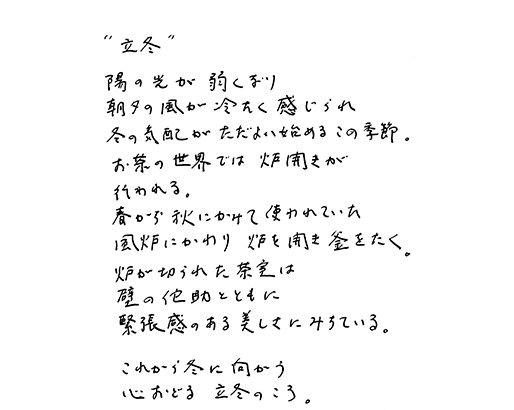 “立冬”
陽の光が弱くなり
朝夕の風が冷たく感じられ
冬の気配がただよい始めるこの季節。
お茶の世界では 炉開きが
行われる。
春から秋にかけて使われていた
風炉にかわり 炉を開き釜をたく。
炉が切られた茶室は
壁の侘助とともに
緊張感のある美しさにみちている。
これから冬に向かう
心おどる 立冬のころ。